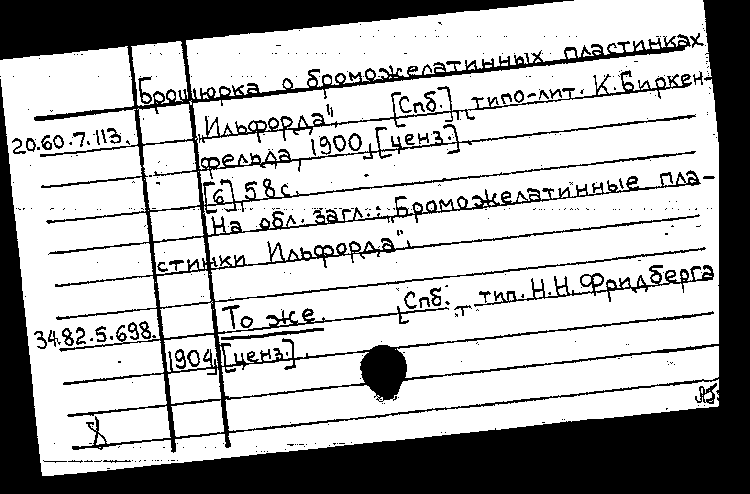 Брошюрка о броможелатинных пластинках
20.60.7.113. „Ильфорда". [Спб.], типо-лит. К. Биркен-
фельда, 1900, [ценз.].
[6], 58 с.
На обл. загл.: „Броможелатинные пла-
стинки Ильфорда".
34.82.5.698. То же. [Спб.], тип. Н.Н. Фридберга
1904, [ценз.].